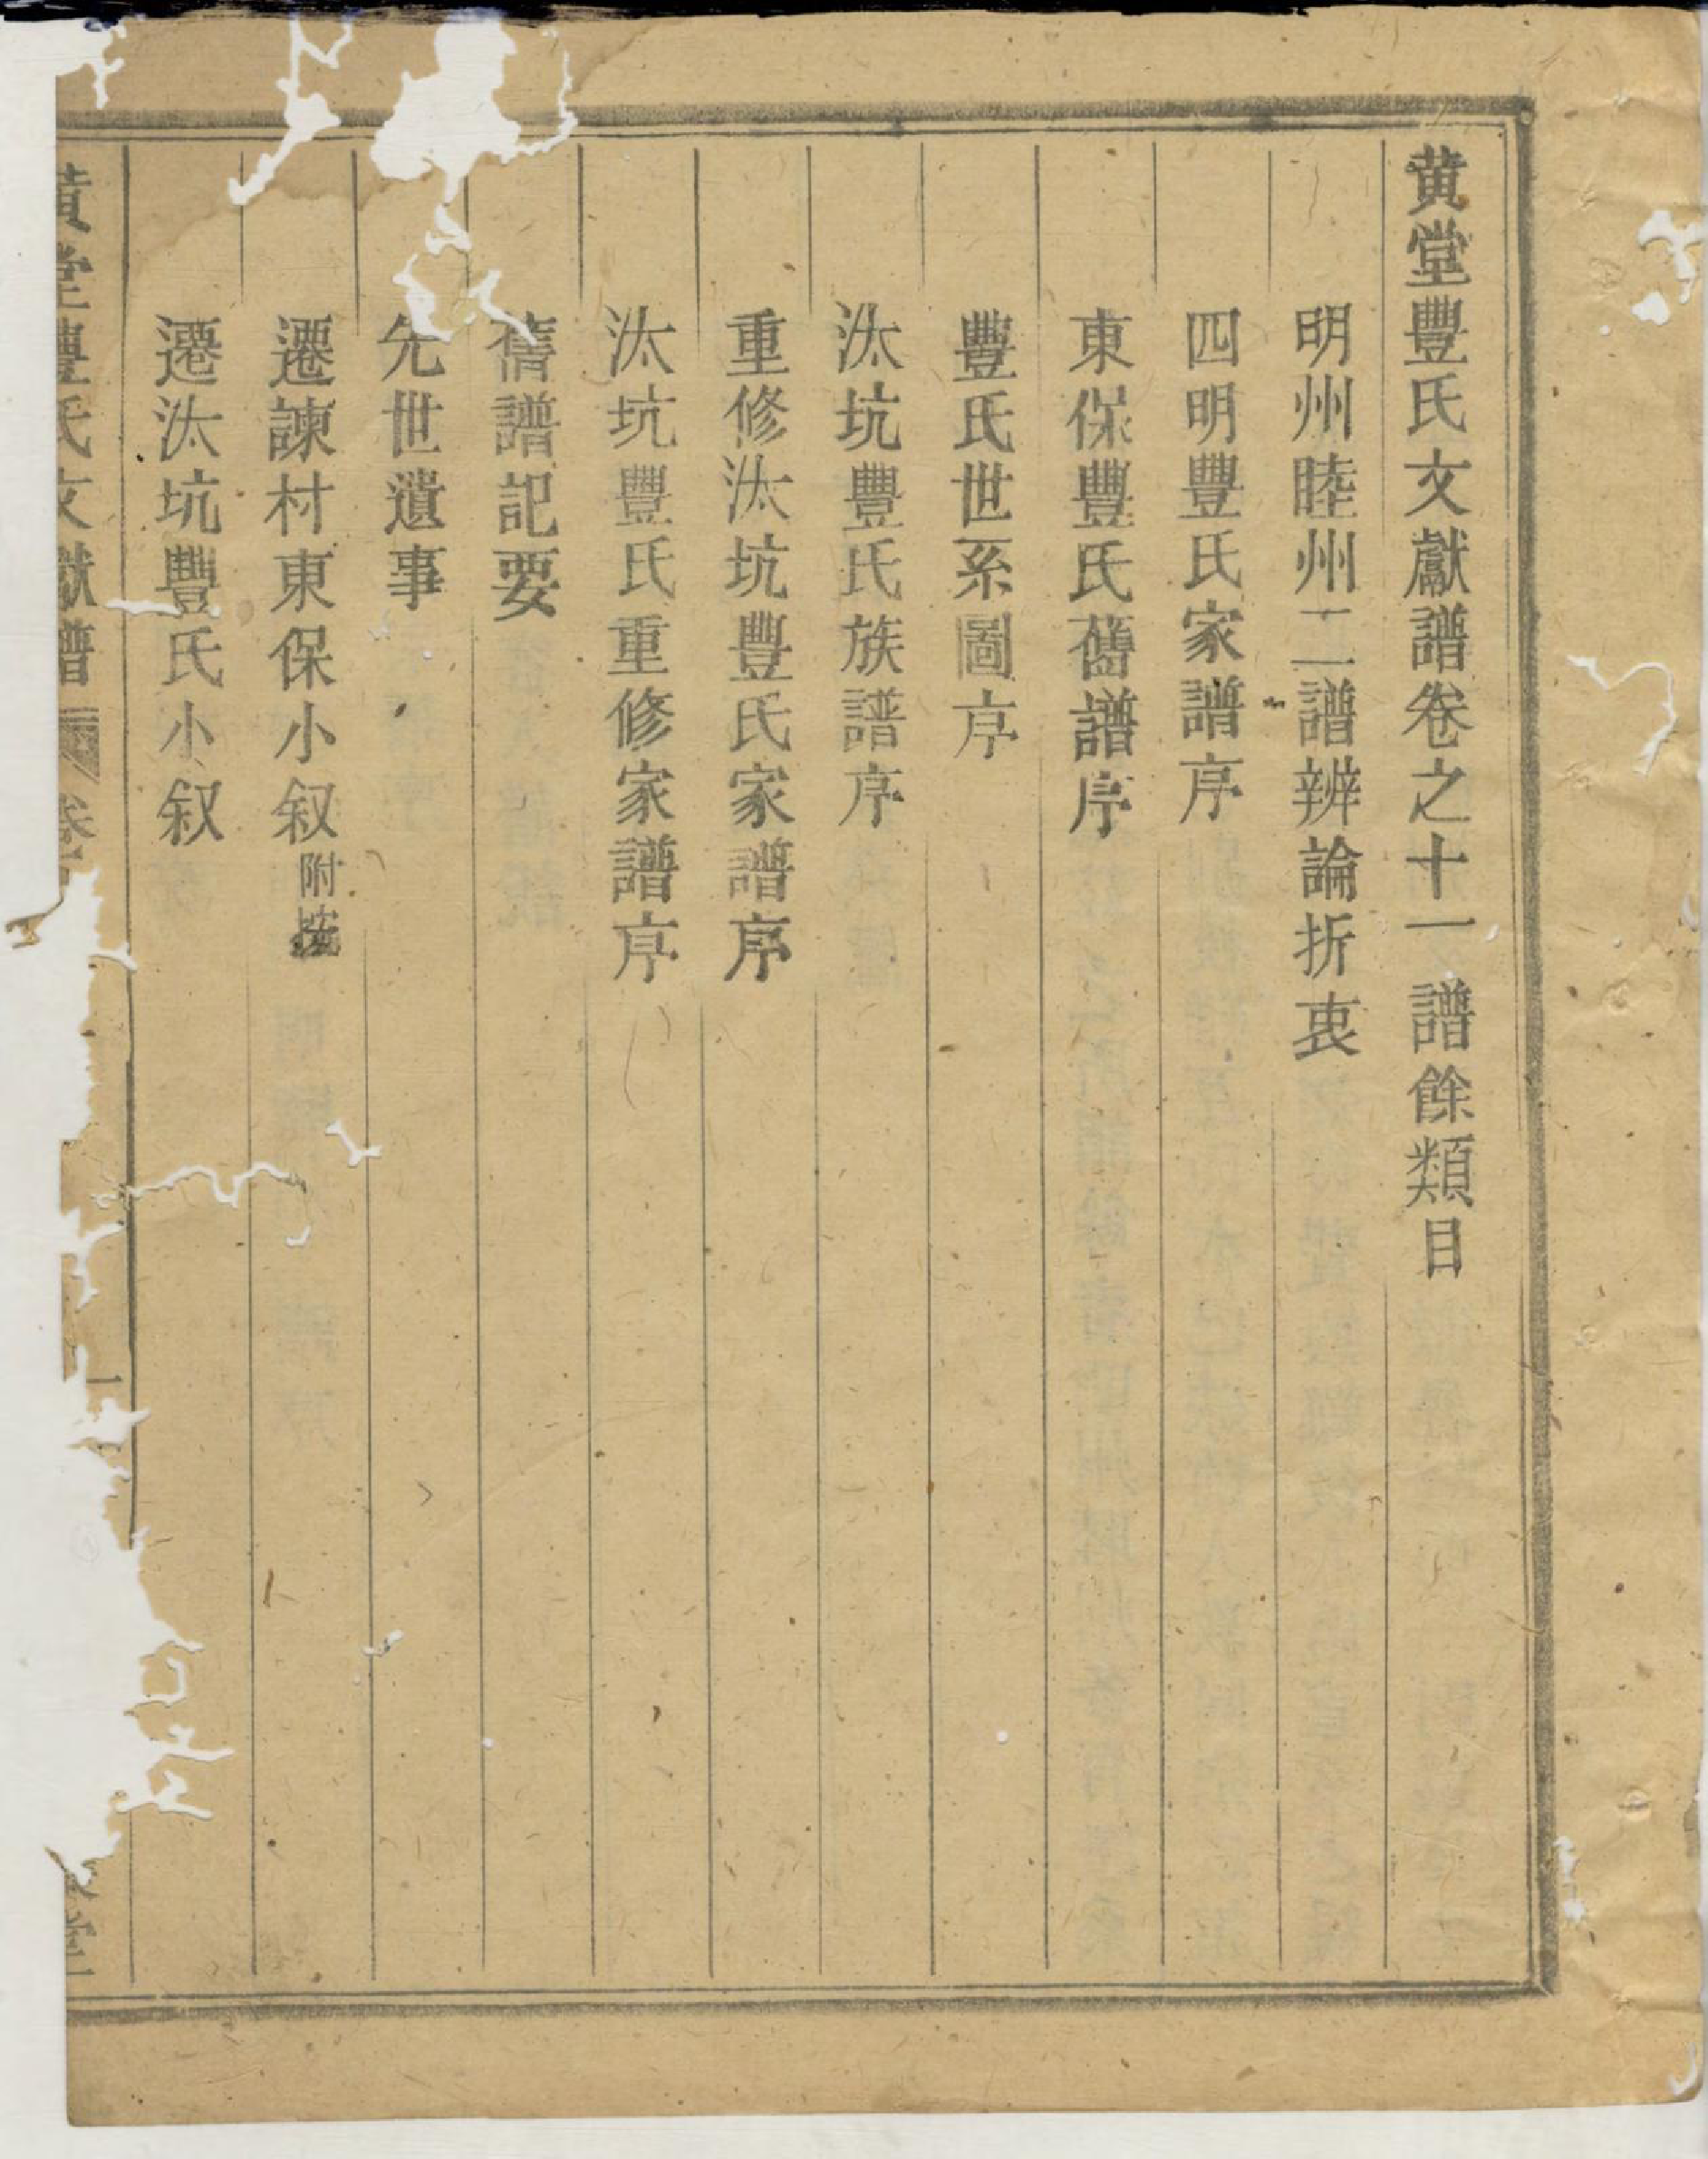 黄堂豐氏文獻譜卷之十一譜餘類目
明州睦州二譜辨論折衷
四明豐氏家譜序
東保豐氏舊譜序
豐氏世系圖序
汰坑豐氏族譜序
重修汰坑豐氏家譜序
汰坑豐氏重修家譜序
舊譜記要
先世遺事
遷諫村東保小叙附按
遷汰坑豐氏小叙
黄堂豐氏文獻譜 卷
一
堂